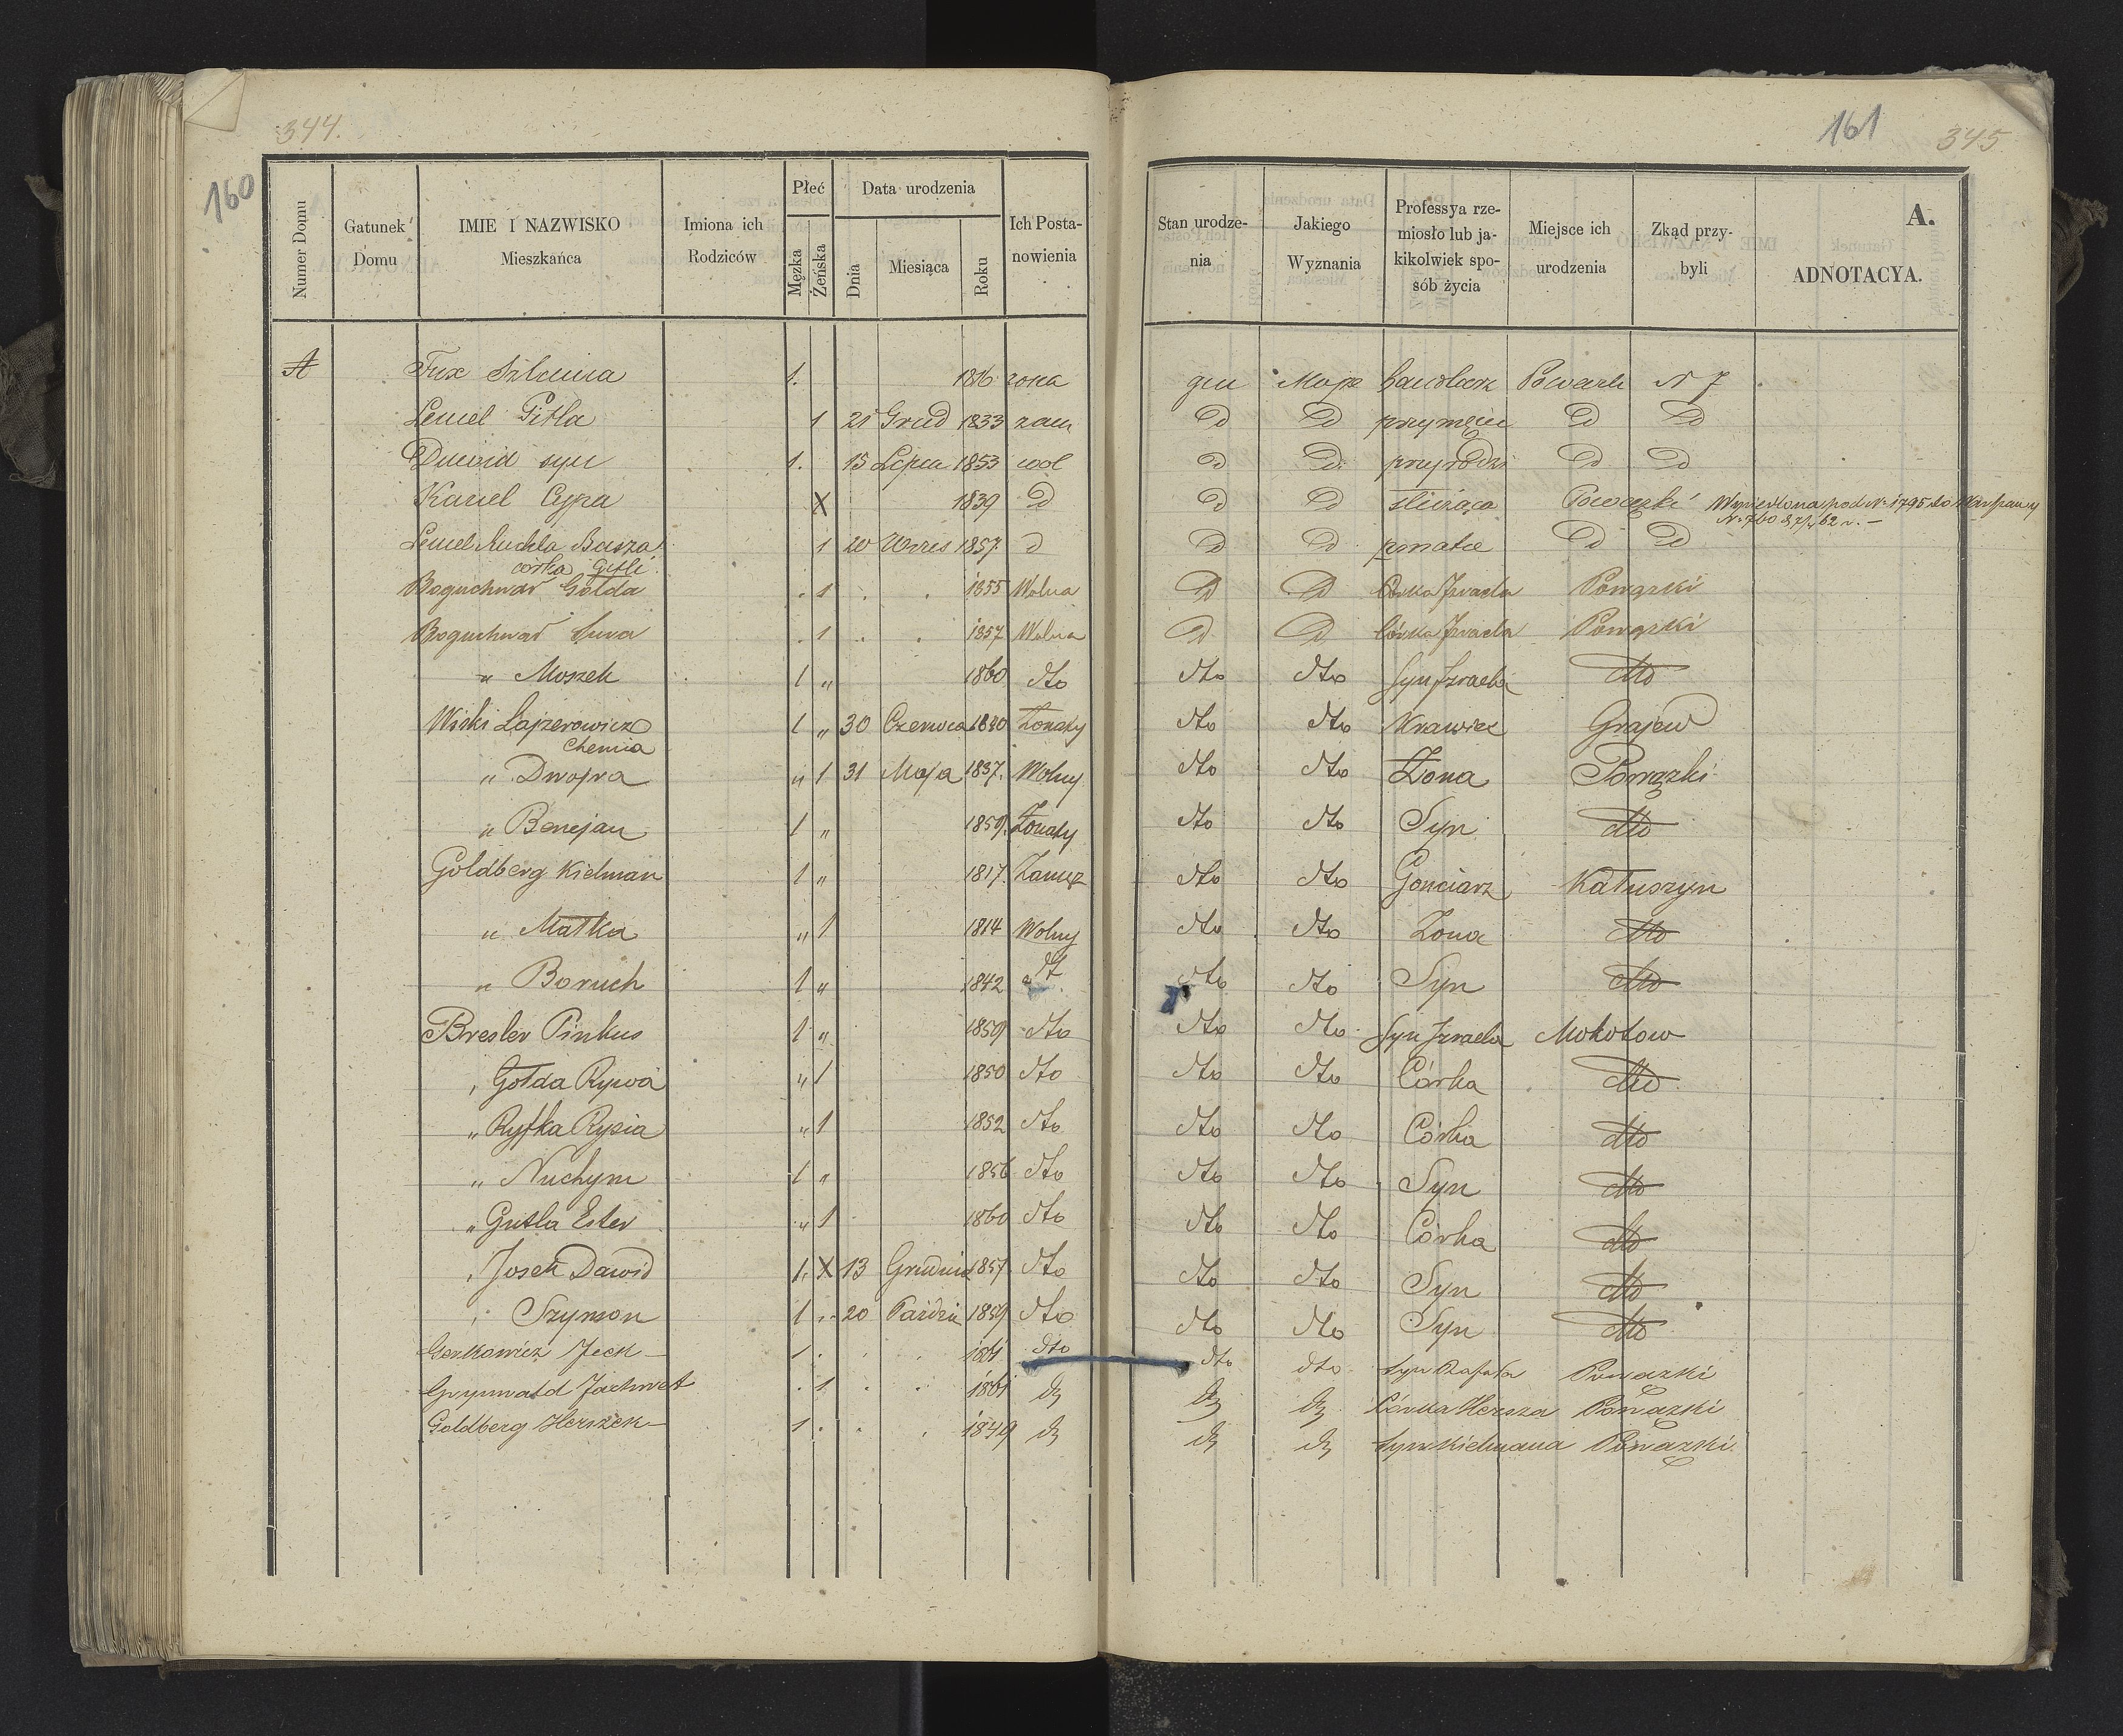 344.
160
161
345
Numer Domu
Gatunek Domu
IMIE I NAZWISKO Mieszkańca
Imiona ich Rodziców
Płeć
Męzka
Żeńska
Data urodzenia
Dnia
Miesiąca
Roku
Ich Postanowienia
Stan urodzenia
Jakiego Wyznania
Professya rzemiosło lub jakikolwiek sposób życia
Miejsce ich urodzenia
Zkąd przybyli
A.
ADNOTACYA.
Fux 1. 1816 Mojż N 7
Lemel Gitla 1 21 Grud 1833 zam D D przy mężu D D
Dawid syn 1. 15 Lipca 1853 wol D D przy rodzi D D
Karel Cypa X 1839 D D D służąca Powązki Wyniesiona pod N. 1795 do Warszawy
Lemel Ruchla Basza 1 20 Wrześ 1857 D D D D D
córka Gitli
Boguchwał Gołda 1 1855 Wolna D D Córka Izraela Powązki
Boguchwał Sura 1 1857 Wolna D D Córka Izraela Powązki
" Moszek 1 " 1860 dto dto dto Syn Izraela dto
Wiski Lajzerowicz 1 " 30 Czerwca 1830 Żonaty dto dto Krawiec Grajew
Chemia
" Dwojra " 1 31 Maja 1837. Wolny dto dto Żona Powązki
" Benejan 1 " 1859. Żonaty dto dto Syn dto
Goldberg Kielman 1 " 1817. Zamęż dto dto Gonciarz Kałuszyn
" Małka " 1 1814 Wolny dto dto Żona dto
" Boruch 1 " 1842 dt dto dto Syn dto
Bresler Pinkus 1 " 1859 dto dto dto Syn Izraela Mokotow
" Gołda Rywa " 1 1850 dto dto dto Córka dto
" Ryfka Rysia " 1 1852 dto dto dto Córka dto
" Nuchym 1 " 1856 dto dto dto Syn dto
" Gutla Ester " 1 1860 dto dto dto Córka dto
" Josek Dawid 1. X 13 Grudnia 1857 dto dto dto Syn dto
" Szymon 1 " 20 Paździe 1859 dto dto dto Syn dto
Gerkowicz Jcek 1 1861 dto dto dto Syn Rafała Powązki
Grynwald Jachwet 1 1861 Córka Hersza Powązki
Goldberg Herszek 1 1849 Syn Kielmana Powązki